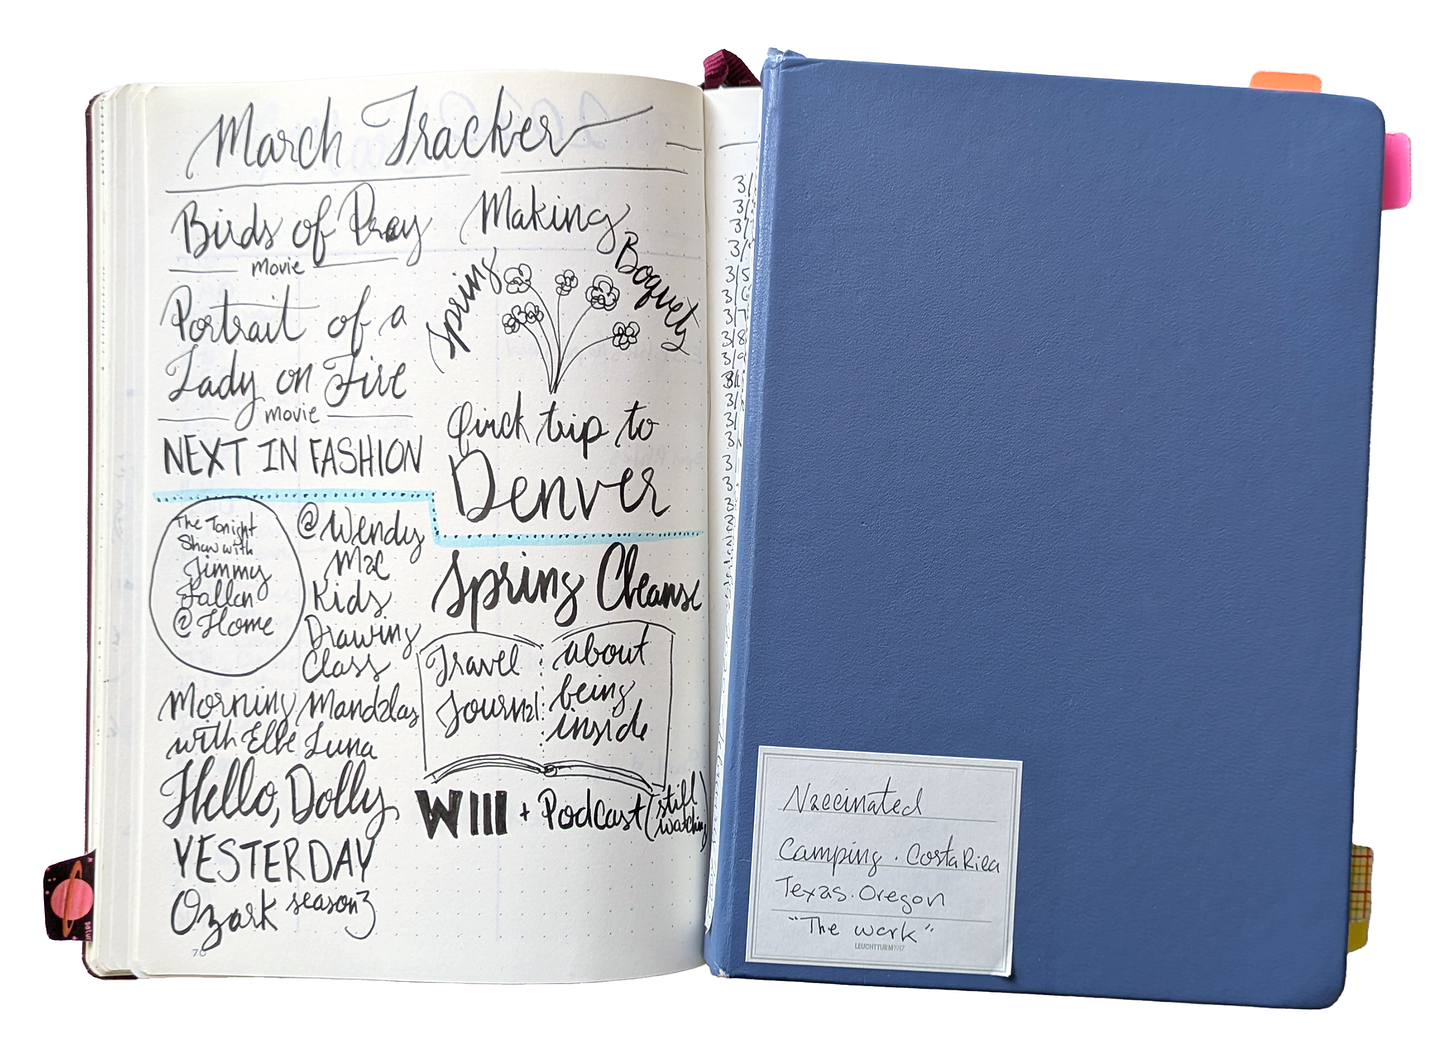 March Tracker
Birds of Prey
movie
Portrait of a
Lady on Fire
movie
NEXT IN FASHION
The Tonight
Show with
Jimmy
Fallon
@Home
@Wendy
Mac
Kids
Drawing
Class
Morning Mandalas
with Elle Luna
Hello, Dolly
YESTERDAY
Ozark season 3
70
Making
Spring Boquets
Quick trip to
Denver
Spring Cleanse
Travel
Journal
about
being
inside
WIll + Podcast (still
watching)
3/5
3/6
3/7
3/8
3/9
Vaccinated
Camping · Costa Rica
Texas · Oregon
"The work"
LEUCHTTURM1917